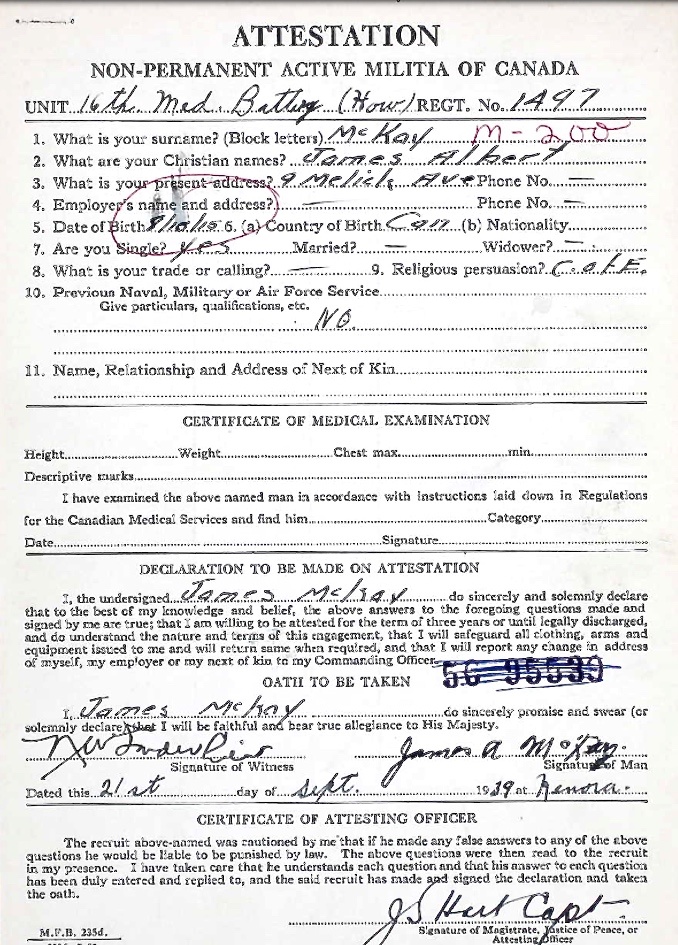 ATTESTATION
NON-PERMANENT ACTIVE MILITIA OF CANADA
UNIT 16th Med. Battery (How) REGT. No. 1497
1. What is your surname? (Block letters) McKay M-200
2. What are your Christian names? James Albert
3. What is your present address? 9 Melick Ave Phone No. —
4. Employer's name and address? — Phone No. —
5. Date of Birth 6. (a) Country of Birth Can (b) Nationality
7. Are you Single? yes Married? — Widower? —
8. What is your trade or calling? — 9. Religious persuasion? C. of E.
10. Previous Naval, Military or Air Force Service
Give particulars, qualifications, etc.
NO.
11. Name, Relationship and Address of Next of Kin
CERTIFICATE OF MEDICAL EXAMINATION
Height Weight Chest max. min.
Descriptive marks
I have examined the above named man in accordance with instructions laid down in Regulations
for the Canadian Medical Services and find him Category
Date Signature
DECLARATION TO BE MADE ON ATTESTATION
I, the undersigned James McKay do sincerely and solemnly declare
that to the best of my knowledge and belief, the above answers to the foregoing questions made and
signed by me are true; that I am willing to be attested for the term of three years or until legally discharged,
and do understand the nature and terms of this engagement, that I will safeguard all clothing, arms and
equipment issued to me and will return same when required, and that I will report any change in address
of myself, my employer or my next of kin to my Commanding Officer.
56 95539
OATH TO BE TAKEN
I, James McKay do sincerely promise and swear (or
solemnly declare) that I will be faithful and bear true allegiance to His Majesty.
James A McKay.
Signature of Witness Signature of Man
Dated this 21st day of Sept. 1939 at Kenora.
CERTIFICATE OF ATTESTING OFFICER
The recruit above-named was cautioned by me that if he made any false answers to any of the above
questions he would be liable to be punished by law. The above questions were then read to the recruit
in my presence. I have taken care that he understands each question and that his answer to each question
has been duly entered and replied to, and the said recruit has made and signed the declaration and taken
the oath.
J S Hart Capt.
M.F.B. 235d. Signature of Magistrate, Justice of Peace, or
Attesting Officer